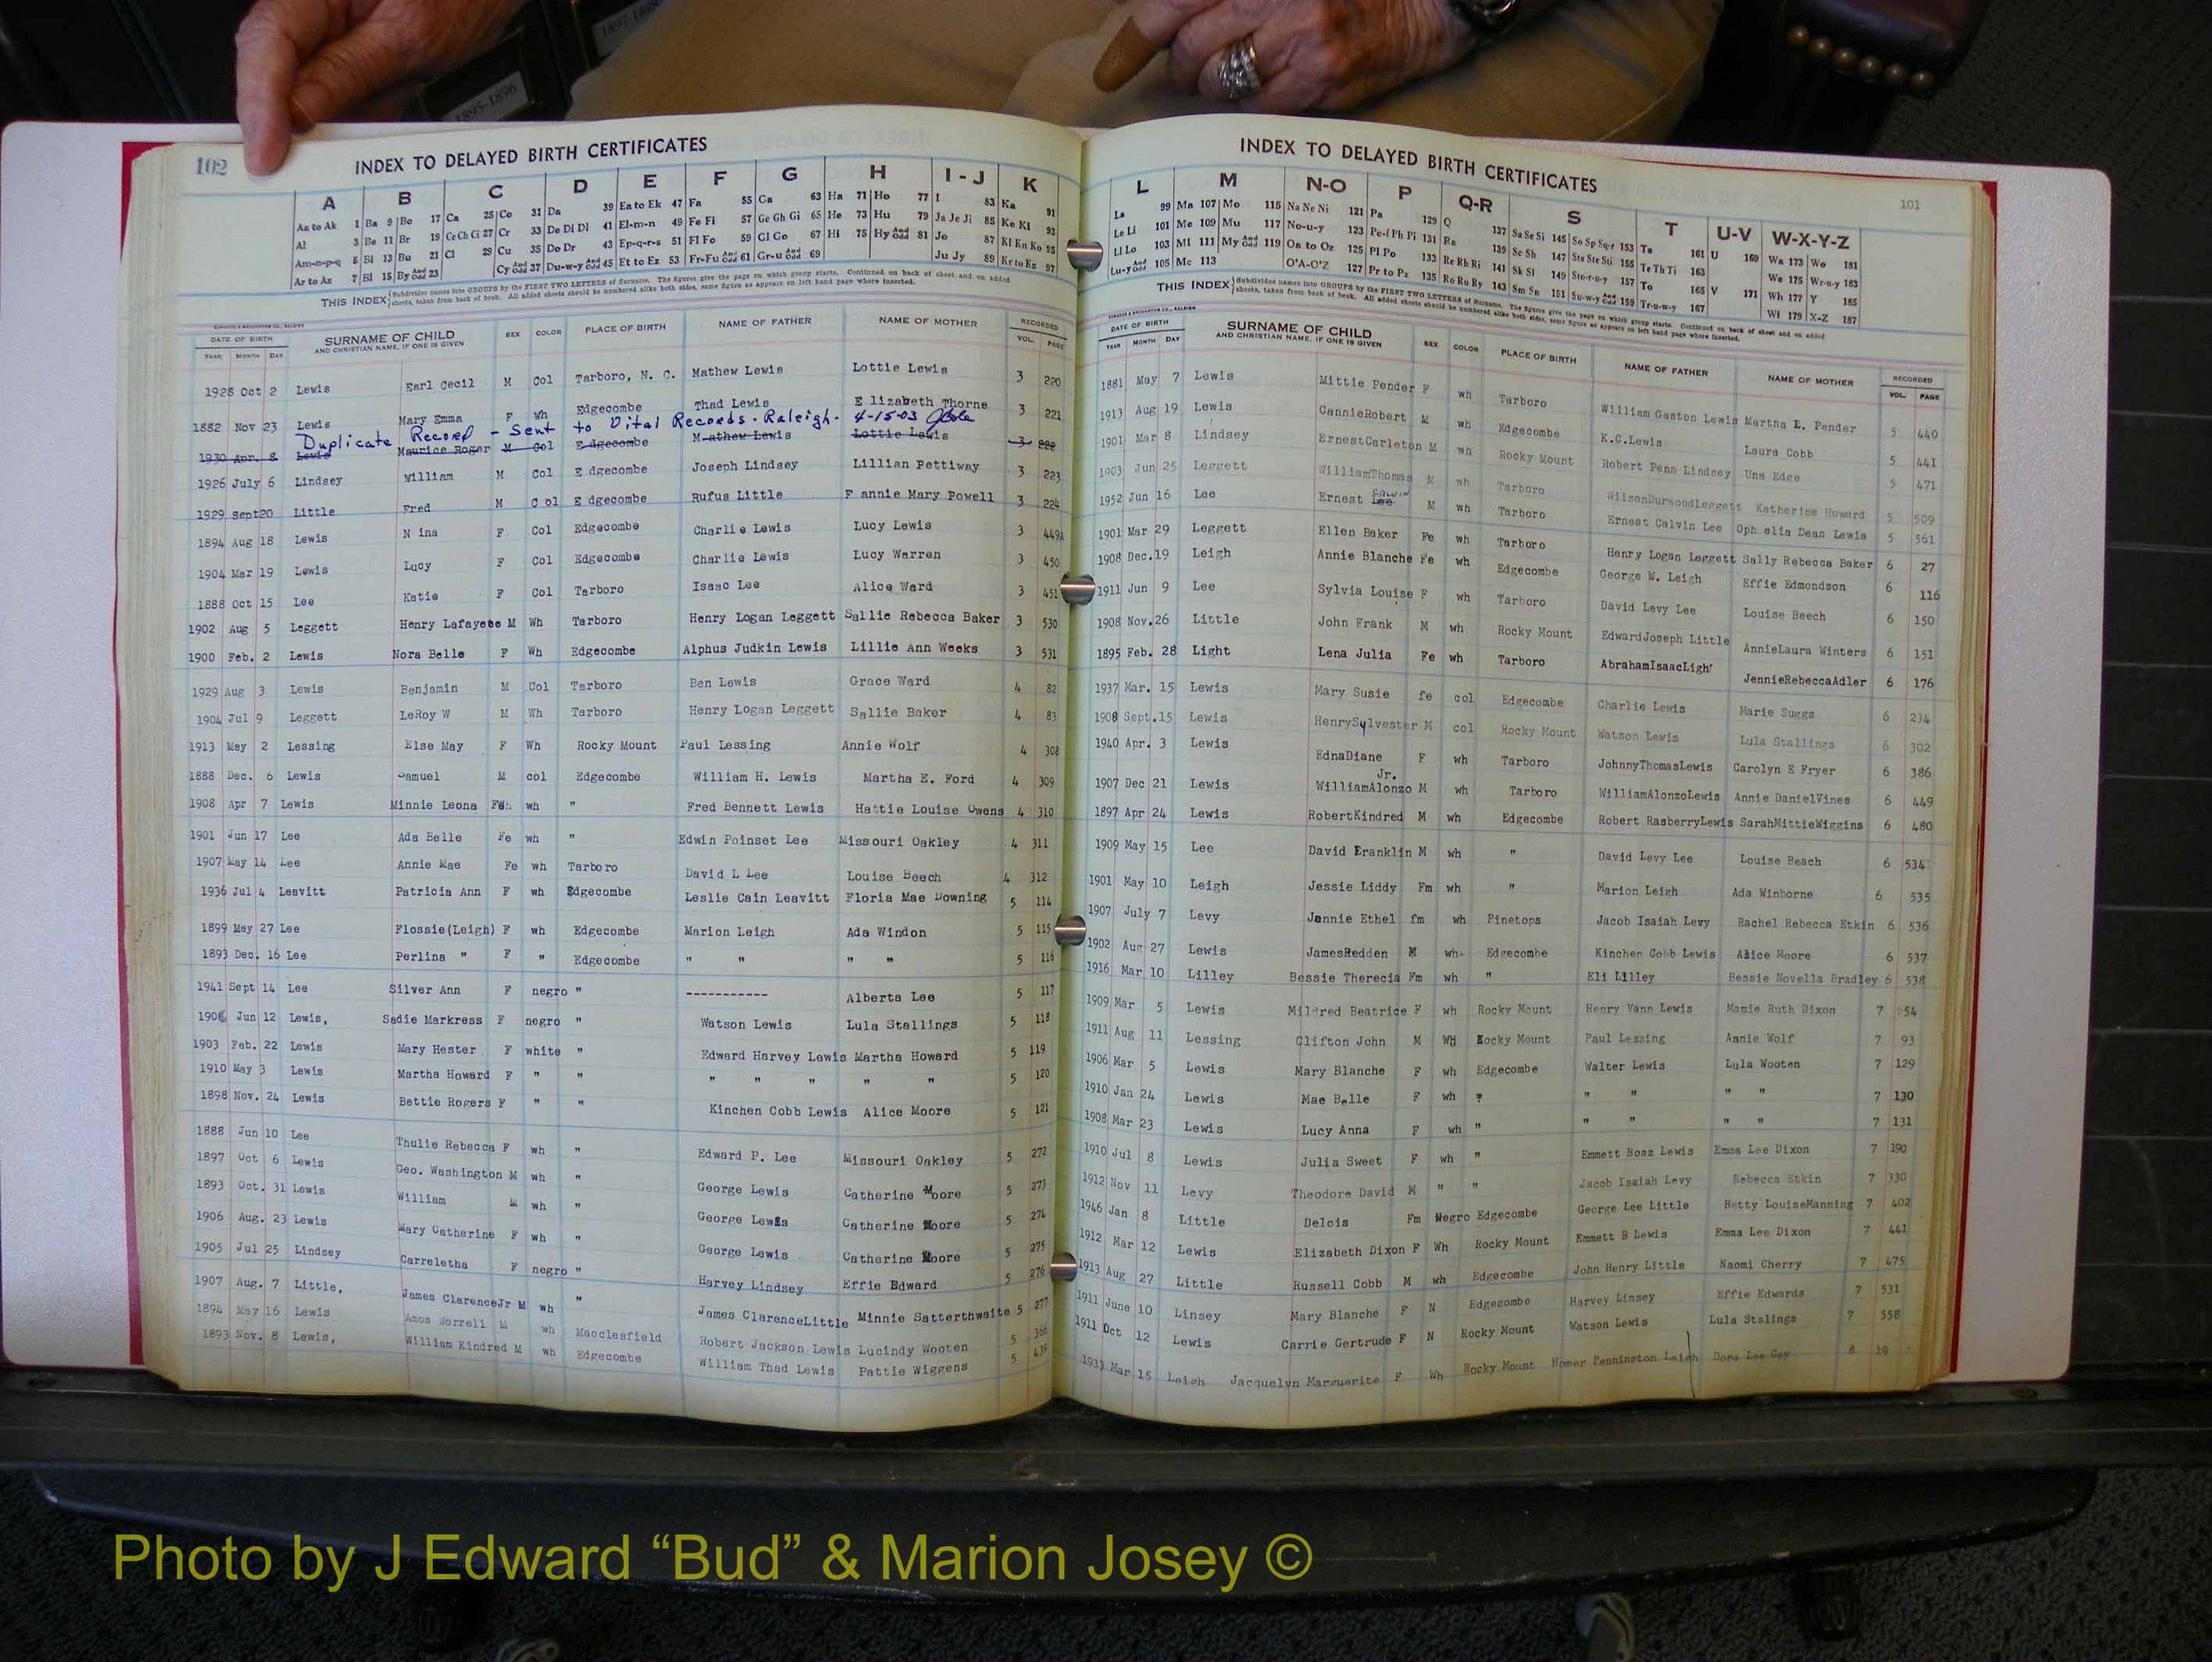 1897-1898
1895-1896
102
INDEX TO DELAYED BIRTH CERTIFICATES
A B C D E F G H I - J K
Aa to Ak 1 Ba 9 Bo 17 Ca 25 Co 31 Da 39 Ea to Ek 47 Fa 55 Ga 63 Ha 71 Ho 77 I 83 Ka 91
Al 3 Be 11 Br 19 Ce Ch Ci 27 Cr 33 De Di Dl 41 El-m-n 49 Fe Fi 57 Ge Gh Gi 65 He 73 Hu 79 Ja Je Ji 85 Ke Kl 93
Am-n-p-q 5 Bi 13 Bu 21 Cl 29 Cu 35 Do Dr 43 Ep-q-r-s 51 Fl Fo 59 Gl Go 67 Hi 75 Hy And Odd 81 Jo 87 Kl Kn Ko 95
Ar to Az 7 Bl 15 By And Odd 23 Cy And Odd 37 Du-w-y And Odd 45 Et to Ez 53 Fr-Fu And Odd 61 Gr-u And Odd 69 Ju Jy 89 Kr to Kz 97
THIS INDEX Subdivides names into GROUPS by the FIRST TWO LETTERS of Surname. The figures give the page on which group starts. Continued on back of sheet and on added
sheets, taken from back of book. All added sheets should be numbered alike both sides, same figure as appears on left hand page where inserted.
DATE OF BIRTH SURNAME OF CHILD SEX COLOR PLACE OF BIRTH NAME OF FATHER NAME OF MOTHER RECORDED
YEAR MONTH DAY AND CHRISTIAN NAME, IF ONE IS GIVEN VOL. PAGE
1928 Oct 2 Lewis Earl Cecil M Col Tarboro, N. C. Mathew Lewis Lottie Lewis 3 220
1882 Nov 23 Lewis Mary Emma F Wh Edgecombe Thad Lewis E lizabeth Thorne 3 221
Duplicate Record - Sent to Vital Records - Raleigh - 4-15-03
1930 Apr. 8 Lewis Maurice Roger M Col E dgecombe Mathew Lewis Lottie Lewis 3 222
1926 July 6 Lindsey William M Col E dgecombe Joseph Lindsey Lillian Pettiway 3 223
1929 Sept20 Little Fred M C ol E dgecombe Rufus Little F annie Mary Powell 3 224
1894 Aug 18 Lewis N ina F Col Edgecombe Charlie Lewis Lucy Lewis 3 449A
1904 Mar 19 Lewis Lucy F Col Edgecombe Charlie Lewis Lucy Warren 3 450
1888 Oct 15 Lee Katie F Col Tarboro Isaac Lee Alice Ward 3 451
1902 Aug 5 Leggett Henry Lafayete M Wh Tarboro Henry Logan Leggett Sallie Rebecca Baker 3 530
1900 Feb. 2 Lewis Nora Belle F Wh Edgecombe Alphus Judkin Lewis Lillie Ann Weeks 3 531
1929 Aug 3 Lewis Benjamin M Col Tarboro Ben Lewis Grace Ward 4 82
1904 Jul 9 Leggett LeRoy W M Wh Tarboro Henry Logan Leggett Sallie Baker 4 83
1913 May 2 Lessing Else May F Wh Rocky Mount Paul Lessing Annie Wolf 4 308
1888 Dec. 6 Lewis Samuel M col Edgecombe William H. Lewis Martha E. Ford 4 309
1908 Apr 7 Lewis Minnie Leona wh " Fred Bennett Lewis Hattie Louise Owens 4 310
1901 Jun 17 Lee Ada Belle Fe wh " Edwin Poinset Lee Missouri Oakley 4 311
1907 May 14 Lee Annie Mae Fe wh Tarboro David L Lee Louise Beech 4 312
1936 Jul 4 Leavitt Patricia Ann F wh Edgecombe Leslie Cain Leavitt Floria Mae Downing 5 114
1899 May 27 Lee Flossie(Leigh) F wh Edgecombe Marion Leigh Ada Windon 5 115
1893 Dec. 16 Lee Perlina " F " Edgecombe " " " " 5 116
1941 Sept 14 Lee Silver Ann F negro " ----------- Alberta Lee 5 117
1906 Jun 12 Lewis, Sadie Markress F negro " Watson Lewis Lula Stallings 5 118
1903 Feb. 22 Lewis Mary Hester F white " Edward Harvey Lewis Martha Howard 5 119
1910 May 3 Lewis Martha Howard F " " " " " " " 5 120
1898 Nov. 24 Lewis Bettie Rogers F " " Kinchen Cobb Lewis Alice Moore 5 121
1888 Jun 10 Lee Thulie Rebecca F wh " Edward P. Lee Missouri Oakley 5 272
1897 Oct 6 Lewis Geo. Washington M wh " George Lewis Catherine Moore 5 273
1893 Oct. 31 Lewis William M wh " George Lewis Catherine Moore 5 274
1906 Aug. 23 Lewis Mary Catherine F wh " George Lewis Catherine Moore 5 275
1905 Jul 25 Lindsey Carreletha F negro " Harvey Lindsey Effie Edward 5 276
1907 Aug. 7 Little, James ClarenceJr M wh " James ClarenceLittle Minnie Satterthwaite 5 277
1894 May 16 Lewis Amos Worrell M wh Macclesfield Robert Jackson Lewis Lucindy Wooten 5 366
1893 Nov. 8 Lewis, William Kindred M wh Edgecombe William Thad Lewis Pattie Wiggens 5 439
101
INDEX TO DELAYED BIRTH CERTIFICATES
L M N-O P Q-R S T U-V W-X-Y-Z
La 99 Ma 107 Mo 115 Na Ne Ni 121 Pa 129 Q 137 Sa Se Si 145 So Sp Sq-r 153 Ta 161 U 169 Wa 173 Wo 181
Le Li 101 Me 109 Mu 117 No-u-y 123 Pe-f Ph Pi 131 Ra 139 Sc Sh 147 Sta Ste Sti 155 Te Th Ti 163 We 175 Wr-u-y 183
Ll Lo 103 Mi 111 My And Odd 119 Oa to Oz 125 Pl Po 133 Re Rh Ri 141 Sk Sl 149 Sto-r-u-y 157 To 165 V 171 Wh 177 Y 185
Lu-y And Odd 105 Mc 113 O'A-O'Z 127 Pr to Pz 135 Ro Ru Ry 143 Sm Sn 151 Su-w-y And Odd 159 Tr-u-w-y 167 Wi 179 X-Z 187
THIS INDEX Subdivides names into GROUPS by the FIRST TWO LETTERS of Surname. The figures give the page on which group starts. Continued on back of sheet and on added
sheets, taken from back of book. All added sheets should be numbered alike both sides, same figure as appears on left hand page where inserted.
DATE OF BIRTH SURNAME OF CHILD SEX COLOR PLACE OF BIRTH NAME OF FATHER NAME OF MOTHER RECORDED
YEAR MONTH DAY AND CHRISTIAN NAME, IF ONE IS GIVEN VOL. PAGE
1881 May 7 Lewis Mittie Pender F wh Tarboro William Gaston Lewis Martha E. Pender 5 440
1913 Aug 19 Lewis CannieRobert M wh Edgecombe K.C.Lewis Laura Cobb 5 441
1901 Mar 8 Lindsey ErnestCarleton M wh Rocky Mount Robert Penn Lindsey Una Edge 5 471
1903 Jun 25 Leggett WilliamThomas M wh Tarboro WilsonDurwoodLeggett Katherine Howard 5 509
1952 Jun 16 Lee Ernest Lee M wh Tarboro Ernest Calvin Lee Oph elia Dean Lewis 5 561
1901 Mar 29 Leggett Ellen Baker Fe wh Tarboro Henry Logan Leggett Sally Rebecca Baker 6 27
1908 Dec.19 Leigh Annie Blanche Fe wh Edgecombe George W. Leigh Effie Edmondson 6 116
1911 Jun 9 Lee Sylvia Louise F wh Tarboro David Levy Lee Louise Beech 6 150
1908 Nov.26 Little John Frank M wh Rocky Mount EdwardJoseph Little AnnieLaura Winters 6 151
1895 Feb. 28 Light Lena Julia Fe wh Tarboro AbrahamIsaacLight JennieRebeccaAdler 6 176
1937 Mar. 15 Lewis Mary Susie fe col Edgecombe Charlie Lewis Marie Suggs 6 234
1908 Sept.15 Lewis HenrySylvester M col Rocky Mount Watson Lewis Lula Stallings 6 302
1940 Apr. 3 Lewis EdnaDiane F wh Tarboro JohnnyThomasLewis Carolyn E Fryer 6 386
1907 Dec 21 Lewis WilliamAlonzo Jr. M wh Tarboro WilliamAlonzoLewis Annie DanielVines 6 449
1897 Apr 24 Lewis RobertKindred M wh Edgecombe Robert RasberryLewis SarahMittieWiggins 6 480
1909 May 15 Lee David Franklin M wh " David Levy Lee Louise Beach 6 534
1901 May 10 Leigh Jessie Liddy Fm wh " Marion Leigh Ada Winborne 6 535
1907 July 7 Levy Jennie Ethel fm wh Pinetops Jacob Isaiah Levy Rachel Rebecca Etkin 6 536
1902 Aug 27 Lewis JamesRedden M wh Edgecombe Kinchen Cobb Lewis Alice Moore 6 537
1916 Mar 10 Lilley Bessie Therecia Fm wh " Eli Lilley Bessie Novella Bradley 6 538
1909 Mar 5 Lewis Mildred Beatrice F wh Rocky Mount Henry Vann Lewis Mamie Ruth Dixon 7 54
1911 Aug 11 Lessing Clifton John M Wh Rocky Mount Paul Lessing Annie Wolf 7 93
1906 Mar 5 Lewis Mary Blanche F wh Edgecombe Walter Lewis Lula Wooten 7 129
1910 Jan 24 Lewis Mae Belle F wh " " " " " 7 130
1908 Mar 23 Lewis Lucy Anna F wh " " " " " 7 131
1910 Jul 8 Lewis Julia Sweet F wh " Emmett Boaz Lewis Emma Lee Dixon 7 190
1912 Nov 11 Levy Theodore David M " " Jacob Isaiah Levy Rebecca Etkin 7 330
1946 Jan 8 Little Delois Fm Negro Edgecombe George Lee Little Betty LouiseManning 7 402
1912 Mar 12 Lewis Elizabeth Dixon F Wh Rocky Mount Emmett B Lewis Emma Lee Dixon 7 441
1913 Aug 27 Little Russell Cobb M wh Edgecombe John Henry Little Naomi Cherry 7 475
1911 June 10 Linsey Mary Blanche F N Edgecombe Harvey Linsey Effie Edwards 7 531
1911 Oct 12 Lewis Carrie Gertrude F N Rocky Mount Watson Lewis Lula Stalings 7 558
1933 Mar 15 Leigh Jacquelyn Marguerite F Wh Rocky Mount Homer Pennington Leigh Dora Lee Gay 8 19
Photo by J Edward “Bud” & Marion Josey ©